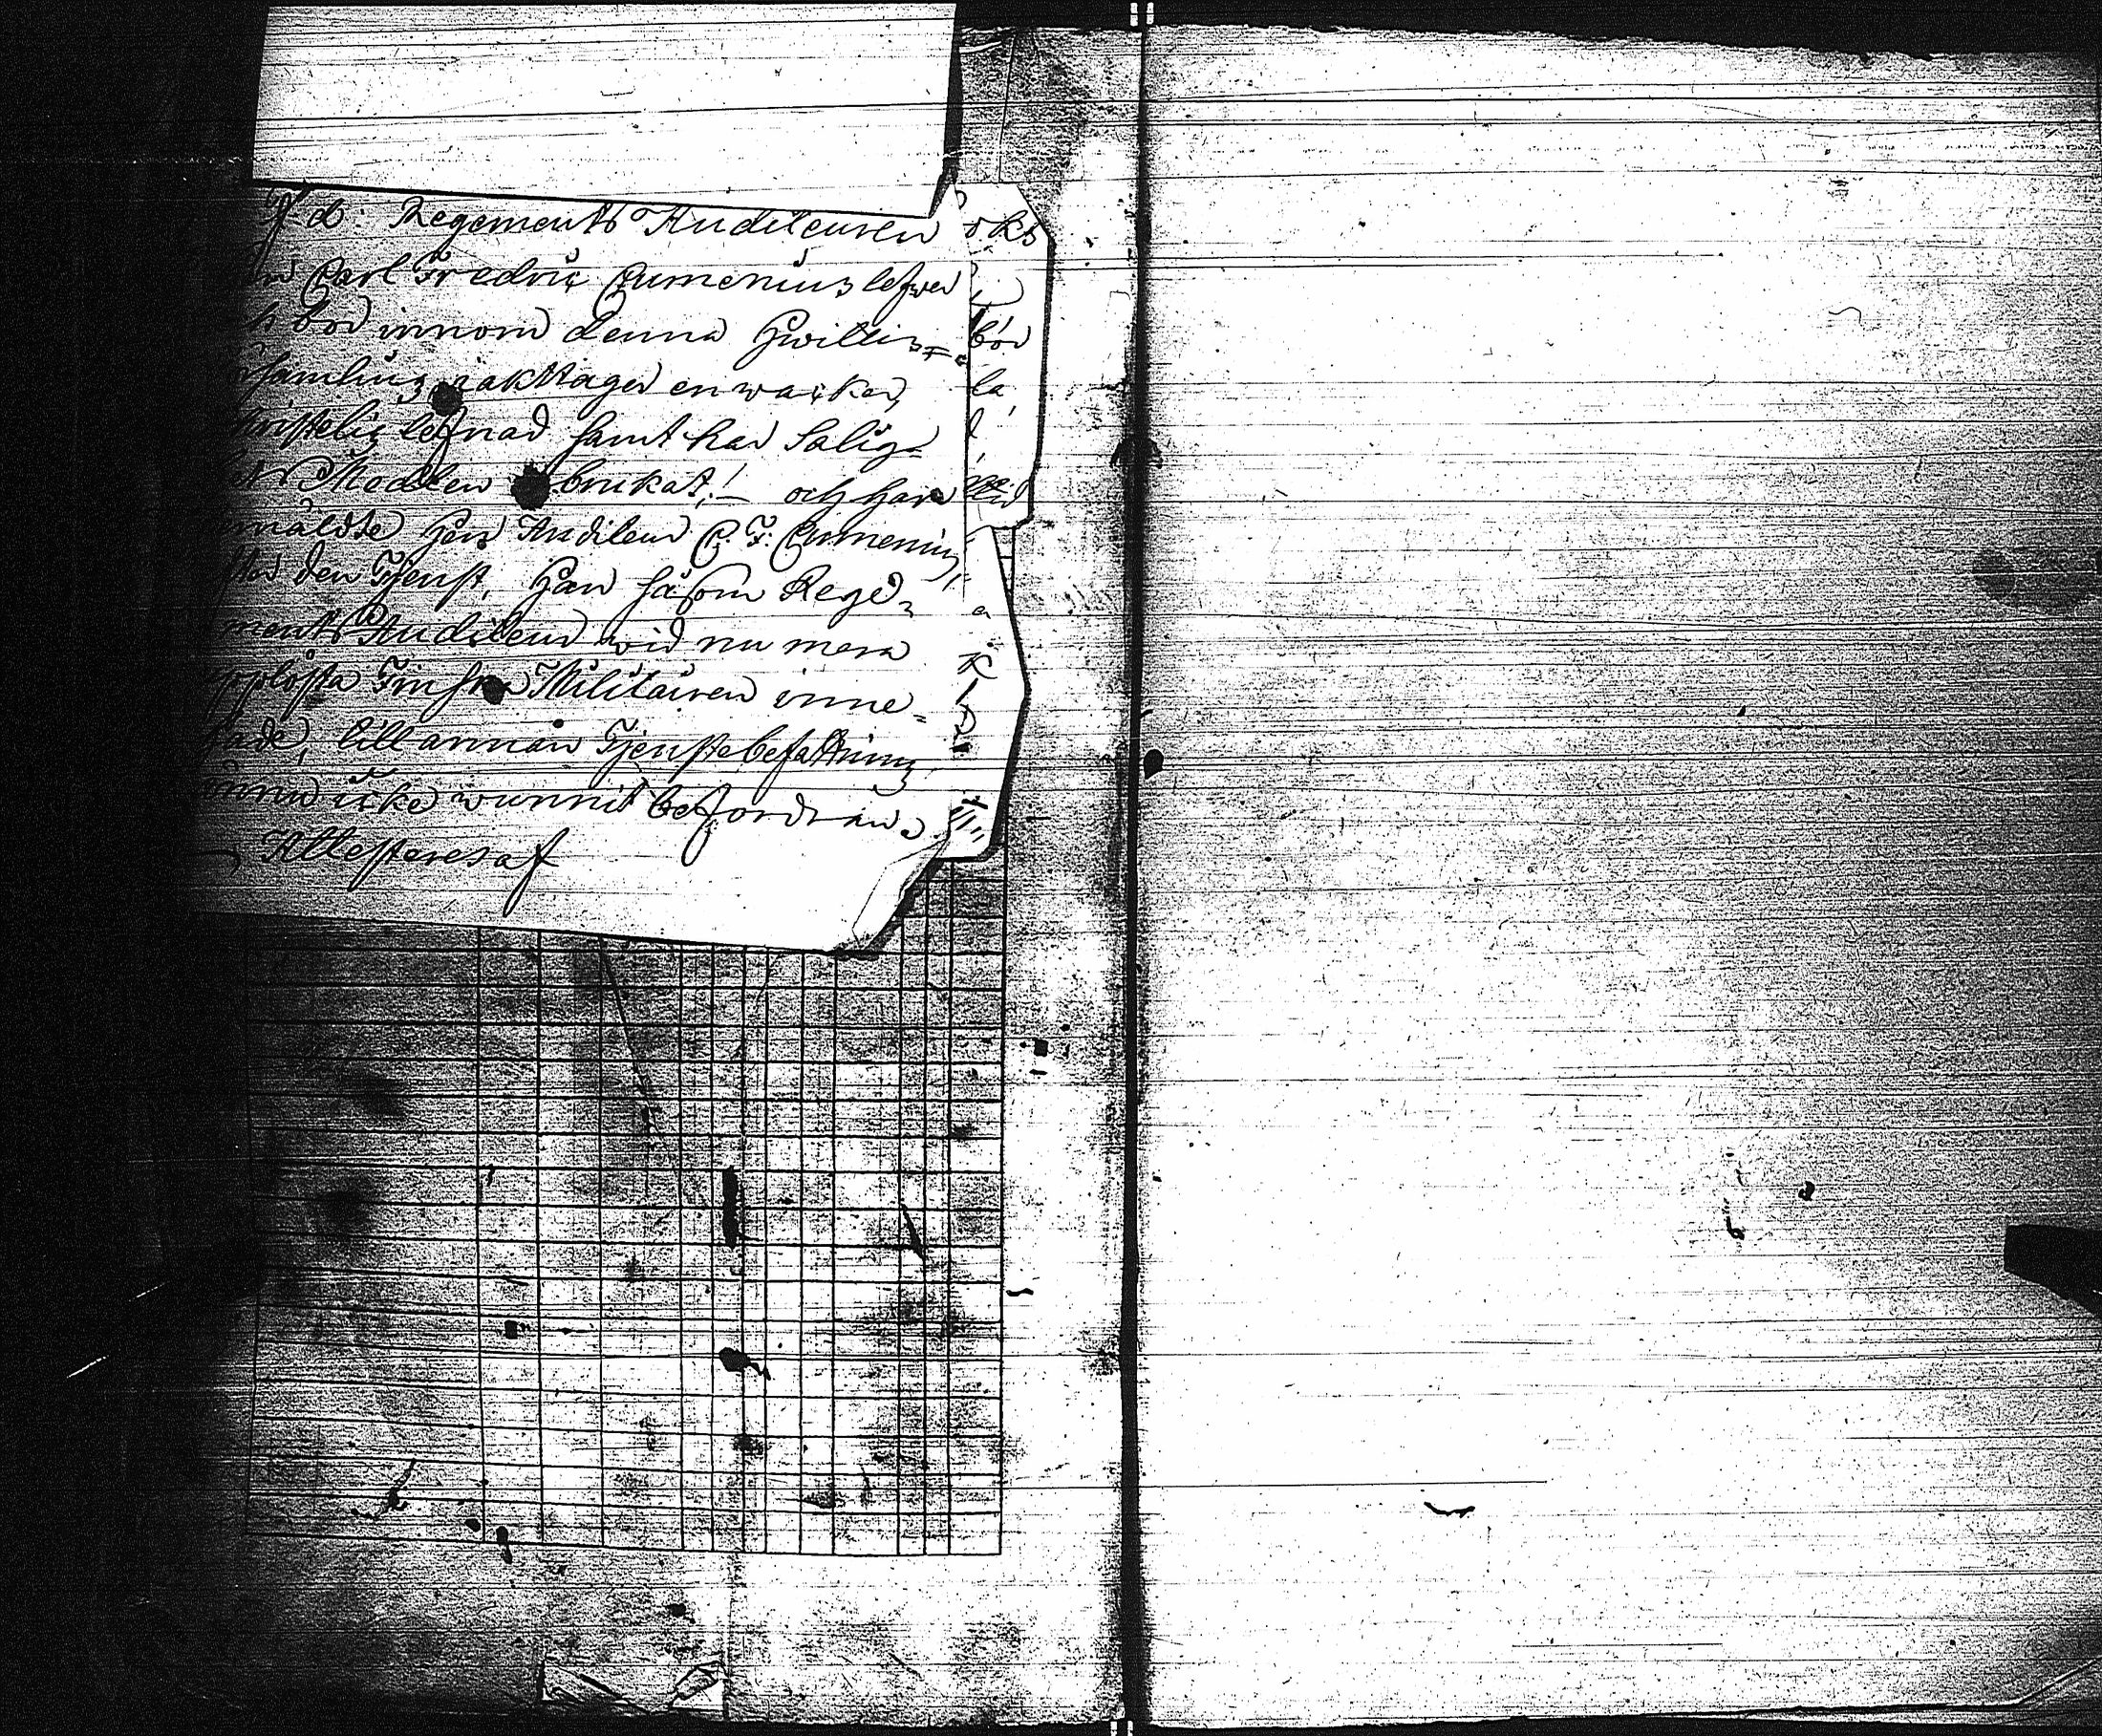 d: Regements Auditeuren
Carl Fredric Cumenius lefver
bor innom denna Hvittis=
församling, iakttager en wacker,
Christelig lefnad samt har Salig=
Medlen brukat! — och har
bemälde Herr Auditeur C. F. Cumenius,
efter den Tjenst, han såsom Rege=
ments Auditeur wid nu mera
upplösta Finska Militairen inne=
hade, till annan Tjenstebefattning
ännu icke wunnit befordran.
Attesteres af
oks
bör
la